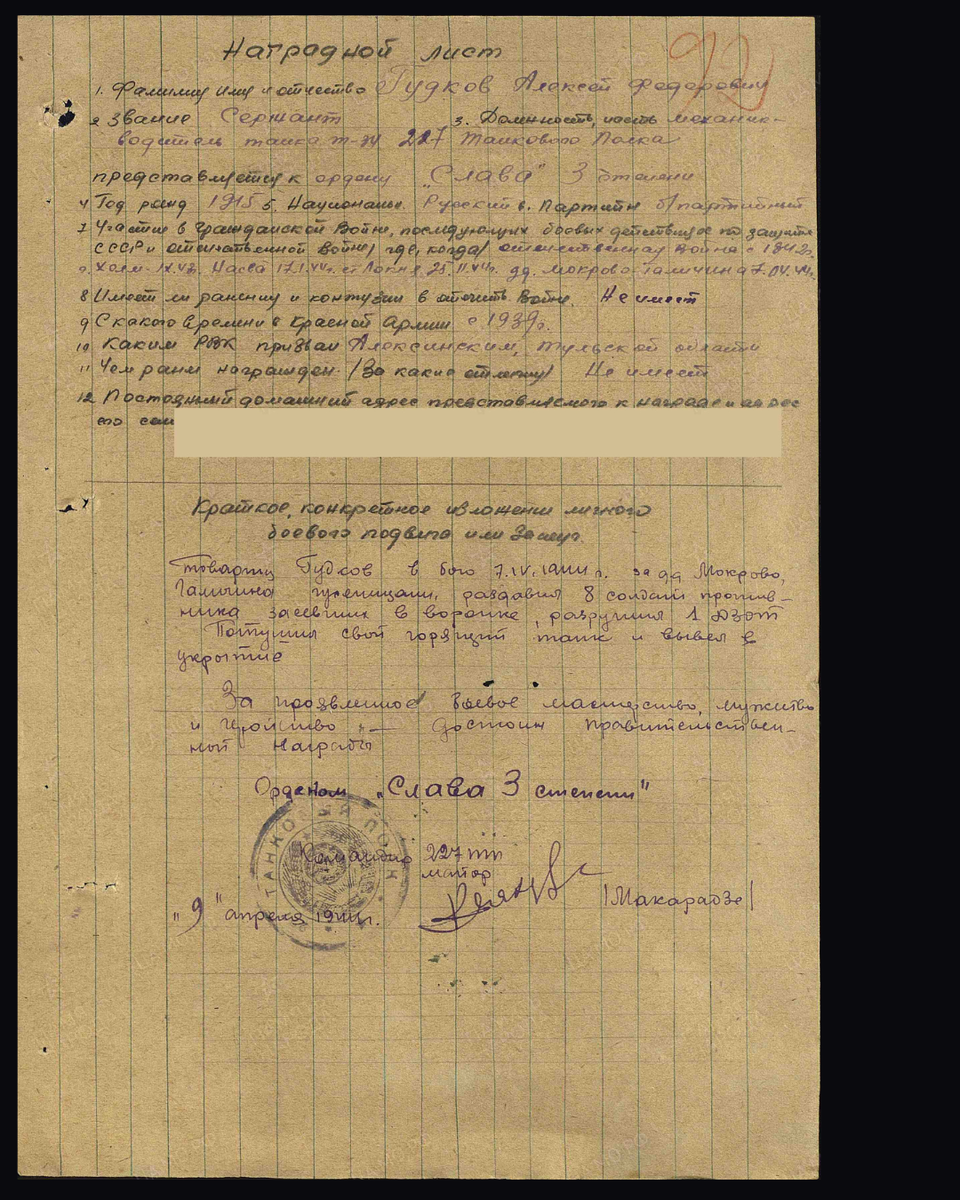 Наградной лист
92
1. Фамилия имя и отчество Гудков Алексей Федорович
2 Звание Сержант 3. Должность, часть механик-
водитель танка Т-34 227 Танкового Полка
представляется к ордену „Слава" 3 степени
4 Год рожд 1915 5. Националн. Русский 6. Партийн б/партийный
7 Участие в Гражданской Войне, последующих боевых действиях по защите
СССР и отечественной войне /где, когда/ отечественная Война с 1942г.
г. Холм - IX.42г. Насва 17.1.44г. ст Локня 25.II.44г. дд. Мокрово-Гамичина 7.04.44г.
8 Имеет ли ранения и контузии в отечеств Войне. Не имеет
9 С какого времени в Красной Армии с 1939г.
10 Каким РВК призван Алексинским, Тульской области
11 Чем ранее награжден /За какие отличия/ Не имеет
12 Постоянный домашний адрес представляемого к награде и адрес
его сем
Краткое, конкретное изложение личного
боевого подвига или заслуг.
Товарищ Гудков в бою 7.IV.1944 г. за дд Мокрово,
Гамичина гусеницами, раздавил 8 солдат против-
ника засевших в воронке, разрушил 1 ДЗОТ
Потушил свой горящий танк и вывел в
укрытие
За проявленное боевое мастерство, мужество
и геройство — достоин правительствен-
ной награды
Орденом „Слава 3 степени"
Командир 227 тп
майор
/Макарадзе/
„9" апреля 1944г.
ТАНКОВЫЙ ПОЛК